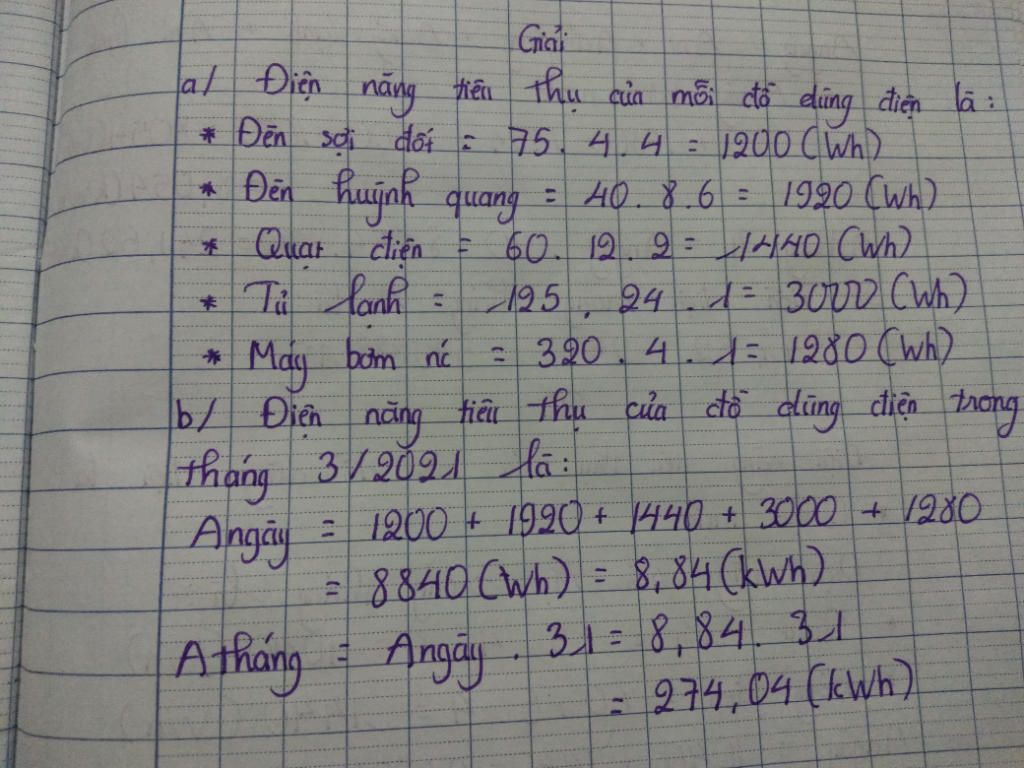 Giải
a/ Điện năng tiêu thụ của mỗi đồ dùng điện là:
* Đèn sợi đốt = 75. 4. 4 = 1200 (Wh)
* Đèn huỳnh quang = 40. 8. 6 = 1920 (Wh)
* Quạt điện = 60. 12. 2 = 1440 (Wh)
* Tủ lạnh = 125. 24. 1 = 3000 (Wh)
* Máy bơm nc = 320. 4. 1 = 1280 (Wh)
b/ Điện năng tiêu thụ của đồ dùng điện trong
tháng 3/2021 là:
Angày = 1200 + 1920 + 1440 + 3000 + 1280
= 8840 (Wh) = 8,84 (kWh)
A tháng = Angày. 31 = 8,84. 31
= 274,04 (kWh)